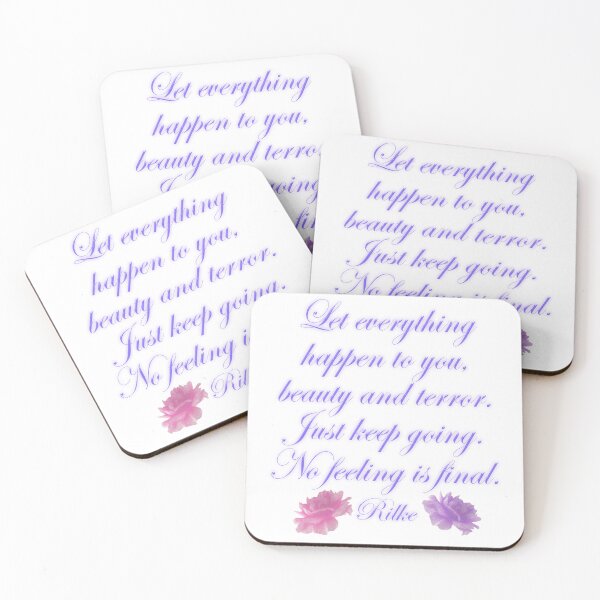 Let everything
happen to you,
beauty and terror
going
Let everything
happen to you,
beauty and terror.
Just keep going.
No feeling is final.
Let everything
happen to you,
beauty and terror.
Just keep going.
No feeling is
Ril
Let everything
happen to you,
beauty and terror.
Just keep going.
No feeling is final.
Rilke